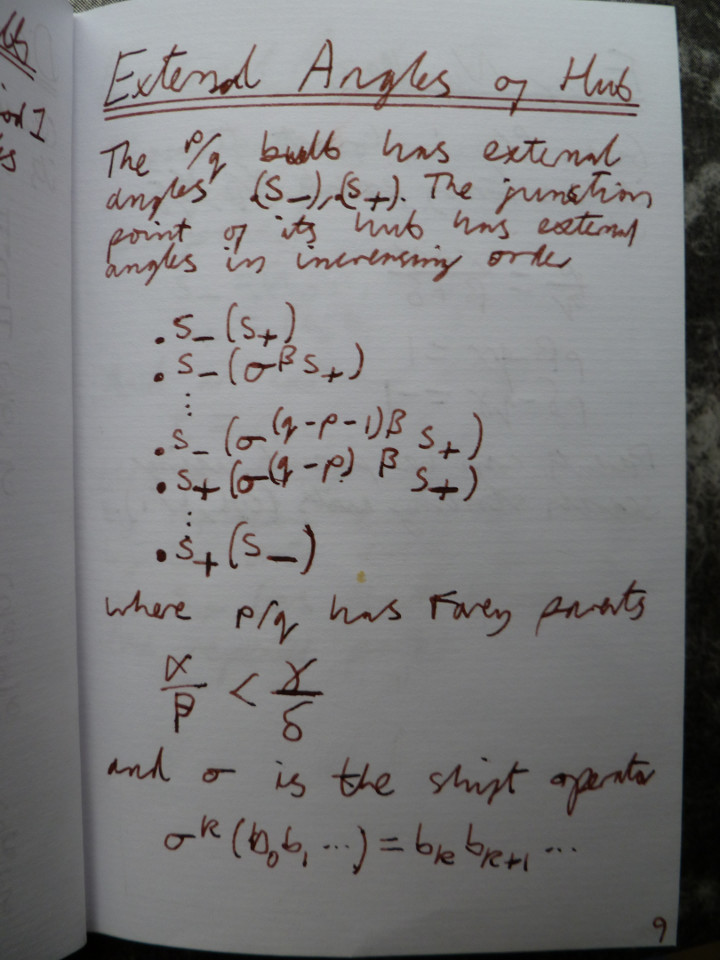 External Angles of Hub
The p/q bulb has external
angles .(S₋), .(S₊). The junction
point of its hub has external
angles in increasing order
. S₋ (S₊)
. S₋ (σ^β S₊)
⋮
. S₋ (σ^(q-p-1)β S₊)
. S₊ (σ^(q-p) β S₊)
⋮
. S₊ (S₋)
where p/q has Farey parents
α/β < γ/δ
and σ is the shift operator
σ^k (b₀b₁ ...) = bₖ bₖ₊₁ ...
9